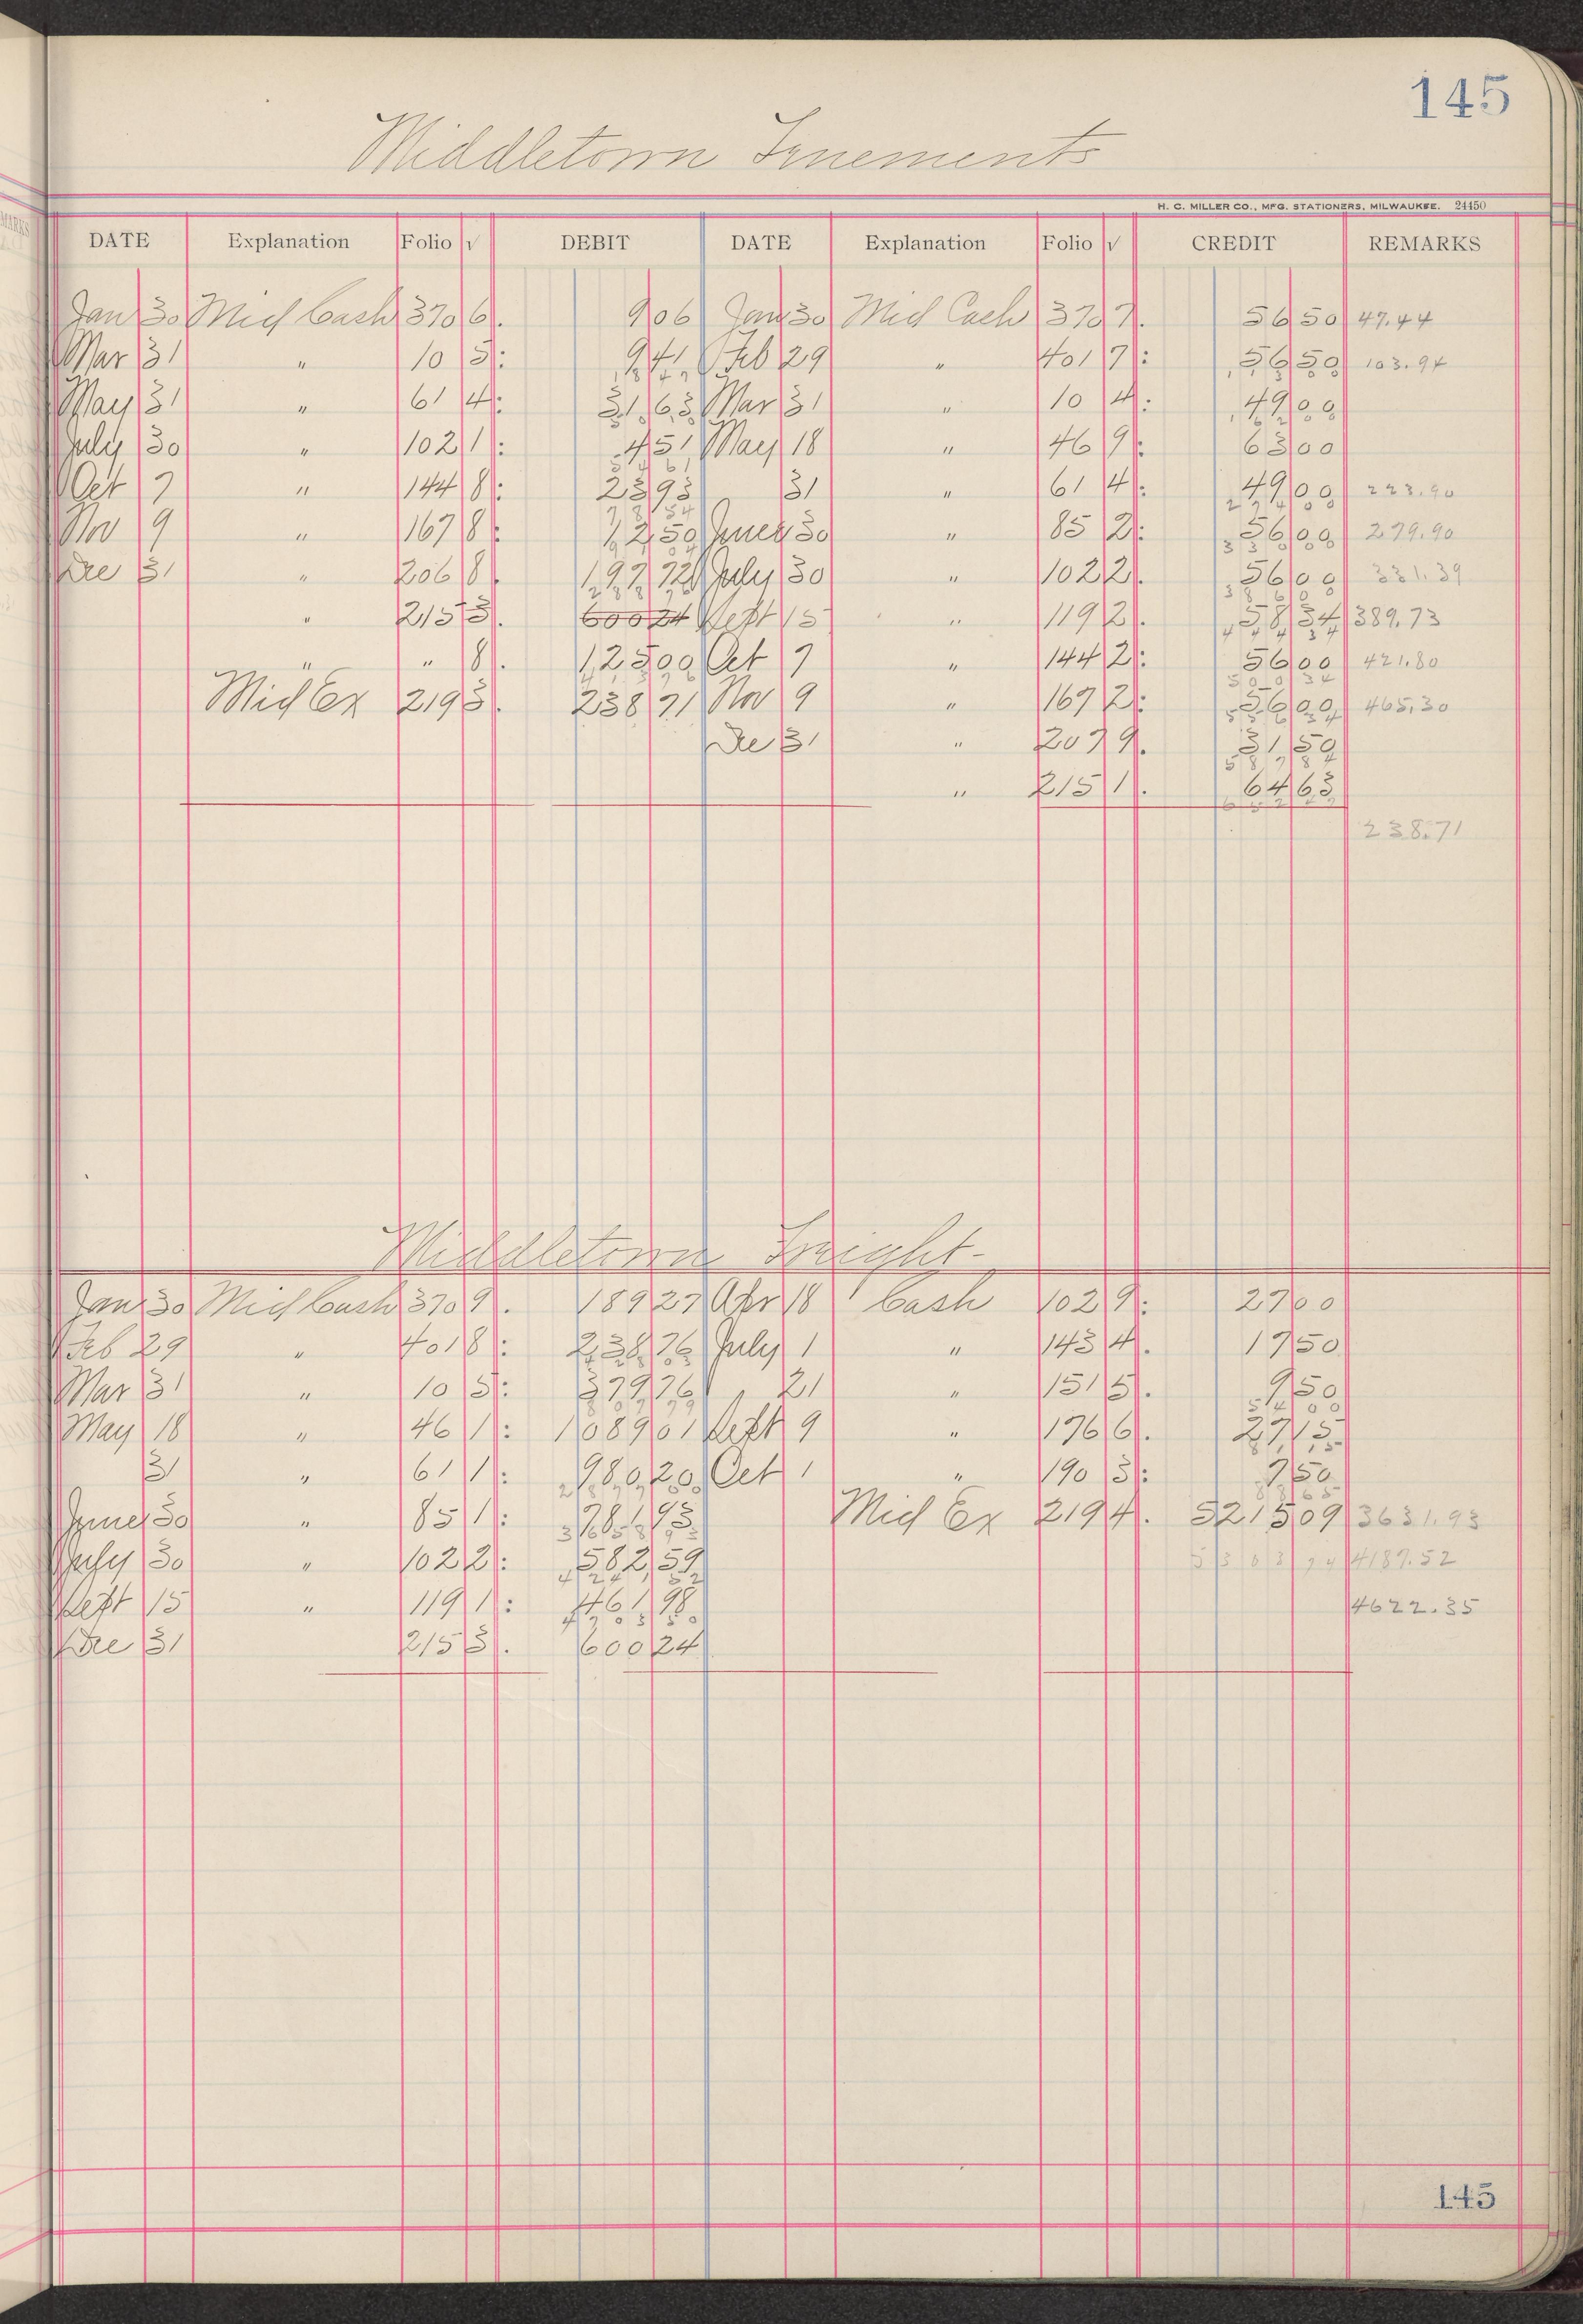 145
Middletown Tenements
H. C. MILLER CO., MFG. STATIONERS, MILWAUKEE. 24450
DATE Explanation Folio √ DEBIT DATE Explanation Folio √ CREDIT REMARKS
Jan 30 Mid Cash 370 6. 9 06 Jan 30 Mid Cash 370 7. 56 50 47.44
Mar 31 " 10 5: 9 41 Feb 29 " 401 7: 56 50 103.94
May 31 " 61 4: 31 63 Mar 31 " 10 4: 49 00
July 30 " 102 1: 4 51 May 18 " 46 9: 63 00
Oct 7 " 144 8: 23 93 31 " 61 4: 49 00 223.90
Nov 9 " 167 8: 12 50 June 30 " 85 2: 56 00 279.90
Dec 31 " 206 8. 197 72 July 30 " 102 2. 56 00 331.39
" 215 3. 600 24 Sept 15 " 119 2. 58 34 389.73
" " 8. 125 00 Oct 7 " 144 2: 56 00 421.80
Mid Ex 219 3. 238 71 Nov 9 " 167 2: 56 00 465.30
Dec 31 " 207 9. 31 50
" 215 1. 64 63
238.71
Middletown Freight
Jan 30 Mid Cash 370 9. 189 27 Apr 18 Cash 102 9: 27 00
Feb 29 " 401 8: 238 76 July 1 " 143 4. 17 50
Mar 31 " 10 5: 379 76 21 " 151 5. 9 50
May 18 " 46 1: 1089 01 Sept 9 " 176 6. 27 15
31 " 61 1: 980 20 Oct 1 " 190 3: 7 50
June 30 " 85 1: 781 93 Mid Ex 219 4. 5215 09 3631.93
July 30 " 102 2: 582 59 5303 74 4187.52
Sept 15 " 119 1: 461 98 4622.35
Dec 31 215 3. 600 24
145